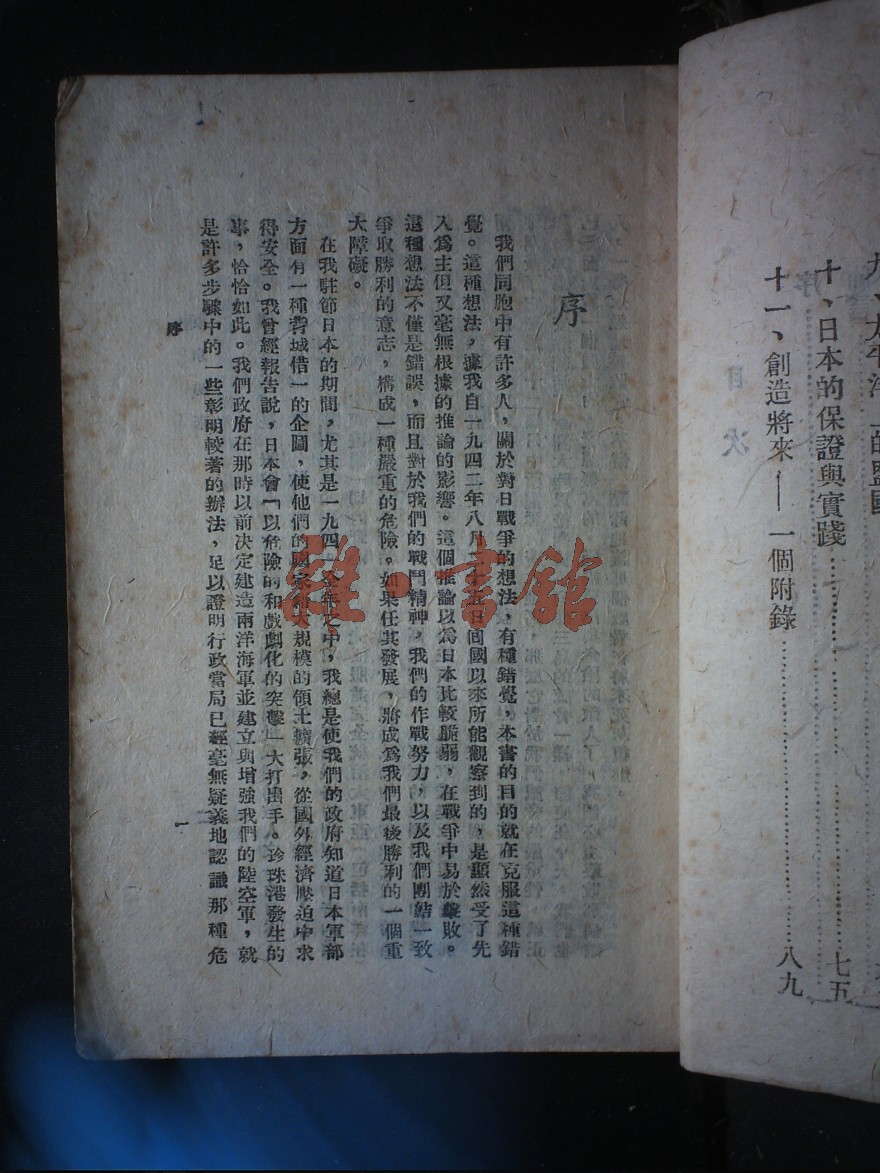 十、日本的保證與實踐……七五
十一、創造將來——一個附錄……八九
目次
序
我們同胞中有許多人，關於對日戰爭的想法，有種錯覺，本書的目的就在克服這種錯
覺。這種想法，據我自一九四二年八月二十五日回國以來所能觀察到的，是顯然受了先
入爲主但又毫無根據的推論的影響。這個推論以爲日本比較脆弱，在戰爭中易於擊敗。
這種想法不僅是錯誤，而且對於我們的戰鬥精神，我們的作戰努力，以及我們團結一致
爭取勝利的意志，構成一種嚴重的危險。如果任其發展，將成爲我們最後勝利的一個重
大障礙。
在我駐節日本的期間，尤其是一九四一全年之中，我總是使我們的政府知道日本軍部
方面有一種背城借一的企圖，使他們的國家和大規模的領土擴張，從國外經濟壓迫中求
得安全。我曾經報告說，日本會「以危險的和戲劇化的突擊」大打出手。珍珠港發生的
事，恰恰如此。我們政府在那時以前決定建造兩洋海軍並建立與增強我們的陸空軍，就
是許多步驟中的一些彰明較著的辦法，足以證明行政當局已經毫無疑義地認識那種危
序
一
雜·書館